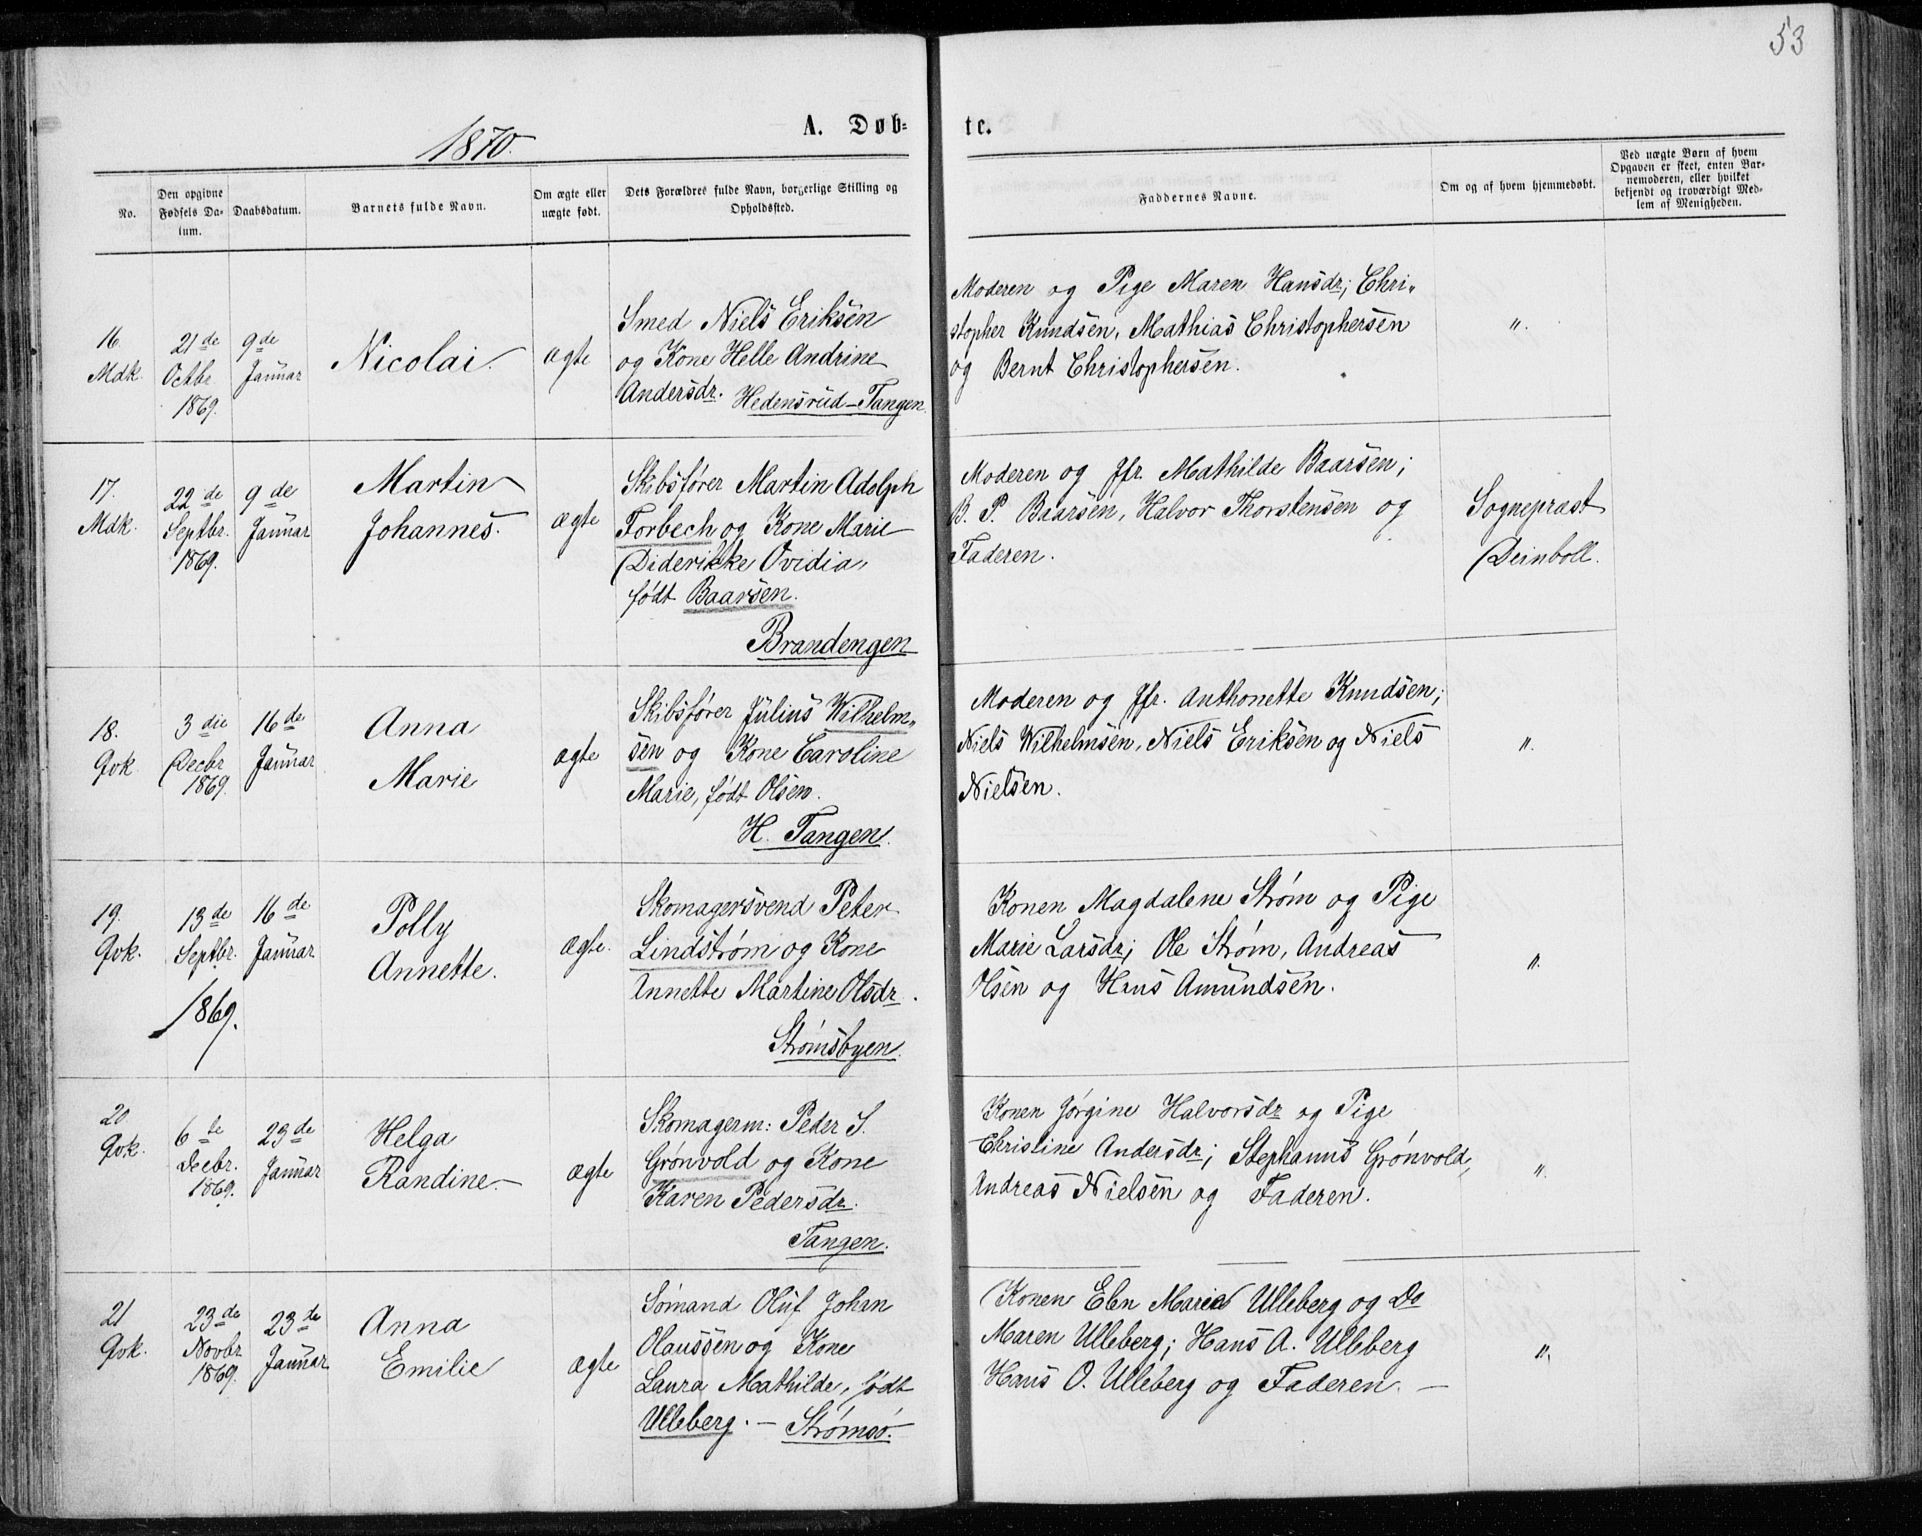 53
1870.
A. Døb-
te.
No.
Den opgivne Fødsels Da-
tum.
Daabsdatum.
Barnets fulde Navn.
Om ægte eller
uægte født.
Dets Forældres fulde Navn, borgerlige Stilling og
Opholdssted.
Faddernes Navne.
Om og af hvem hjemmedøbt.
Ved uægte Børn af hvem
Opgaven er skeet, enten Bar-
nemoderen, eller hvilket
bekjendt og troværdigt Med-
lem af Menigheden.
16.
Mdk.
21de
Octbr
1869.
9de
Januar
Nicolai.
ægte
Smed Niels Eriksen
og Kone Helle Andrine
Andersdr. Hedensrud-Tangen.
Moderen og Pige Maren Hansdr; Chri-
stopher Knudsen, Mathias Christophersen
og Bernt Christophersen.
".
17.
Mdk.
22de
Septbr.
1869.
9de
Januar
Martin
Johannes.
ægte
Skibsfører Martin Adolph
Forbech og Kone Marie
Diderikke Ovidia,
født Baarsen.
Brandengen
Moderen og Jfr. Mathilde Baarsen;
B. P. Baarsen, Halvor Thorstensen og
Faderen.
Sognepræst
Deinboll.
18.
Qvk.
3die
Decbr
1869.
16de
Januar
Anna
Marie
ægte
Skibsfører Julius Wilhelm-
sen og Kone Caroline
Marie, født Olsen.
H. Tangen.
Moderen og Jfr. Anthonette Knudsen;
Niels Wilhelmsen, Niels Eriksen og Niels
Nielsen.
".
19.
Qvk.
13de
Septbr.
1869.
16de
Januar
Polly
Annette.
ægte.
Skomagersvend Peter
Lindstrøm og Kone
Annette Martine Olsdr.
Strømsbyen.
Konen Magdalene Strøm og Pige
Marie Larsdr; Ole Strøm, Andreas
Olsen og Hans Amundsen.
".
20
Qvk.
6te
Decbr.
1869.
23de
Januar
Helga
Randine.
ægte
Skomagerm: Peder S.
Grønvold og Kone
Karen Pedersdr.
Tangen.
Konen Jørgine Halvorsdr og Pige
Christine Andersdr; Stephanus Grønvold,
Andreas Nielsen og Faderen.
".
21
Qvk.
23de
Novbr
1869.
23de
Januar
Anna
Emilie
ægte
Sømand Oluf Johan
Olaussen og Kone
Laura Mathilde, født
Ulleberg. - Strømsø.
Konen Elen Marie Ulleberg og Do
Maren Ulleberg; Hans A. Ulleberg
Hans O. Ulleberg og Faderen. -
".